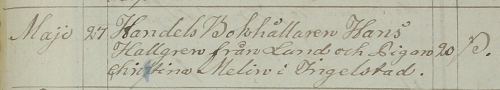 Majo 27 Handels Bokhållaren Hans
Hallgren från Lund och Pigan 20 B.
Christina Melin i Ingelstad.